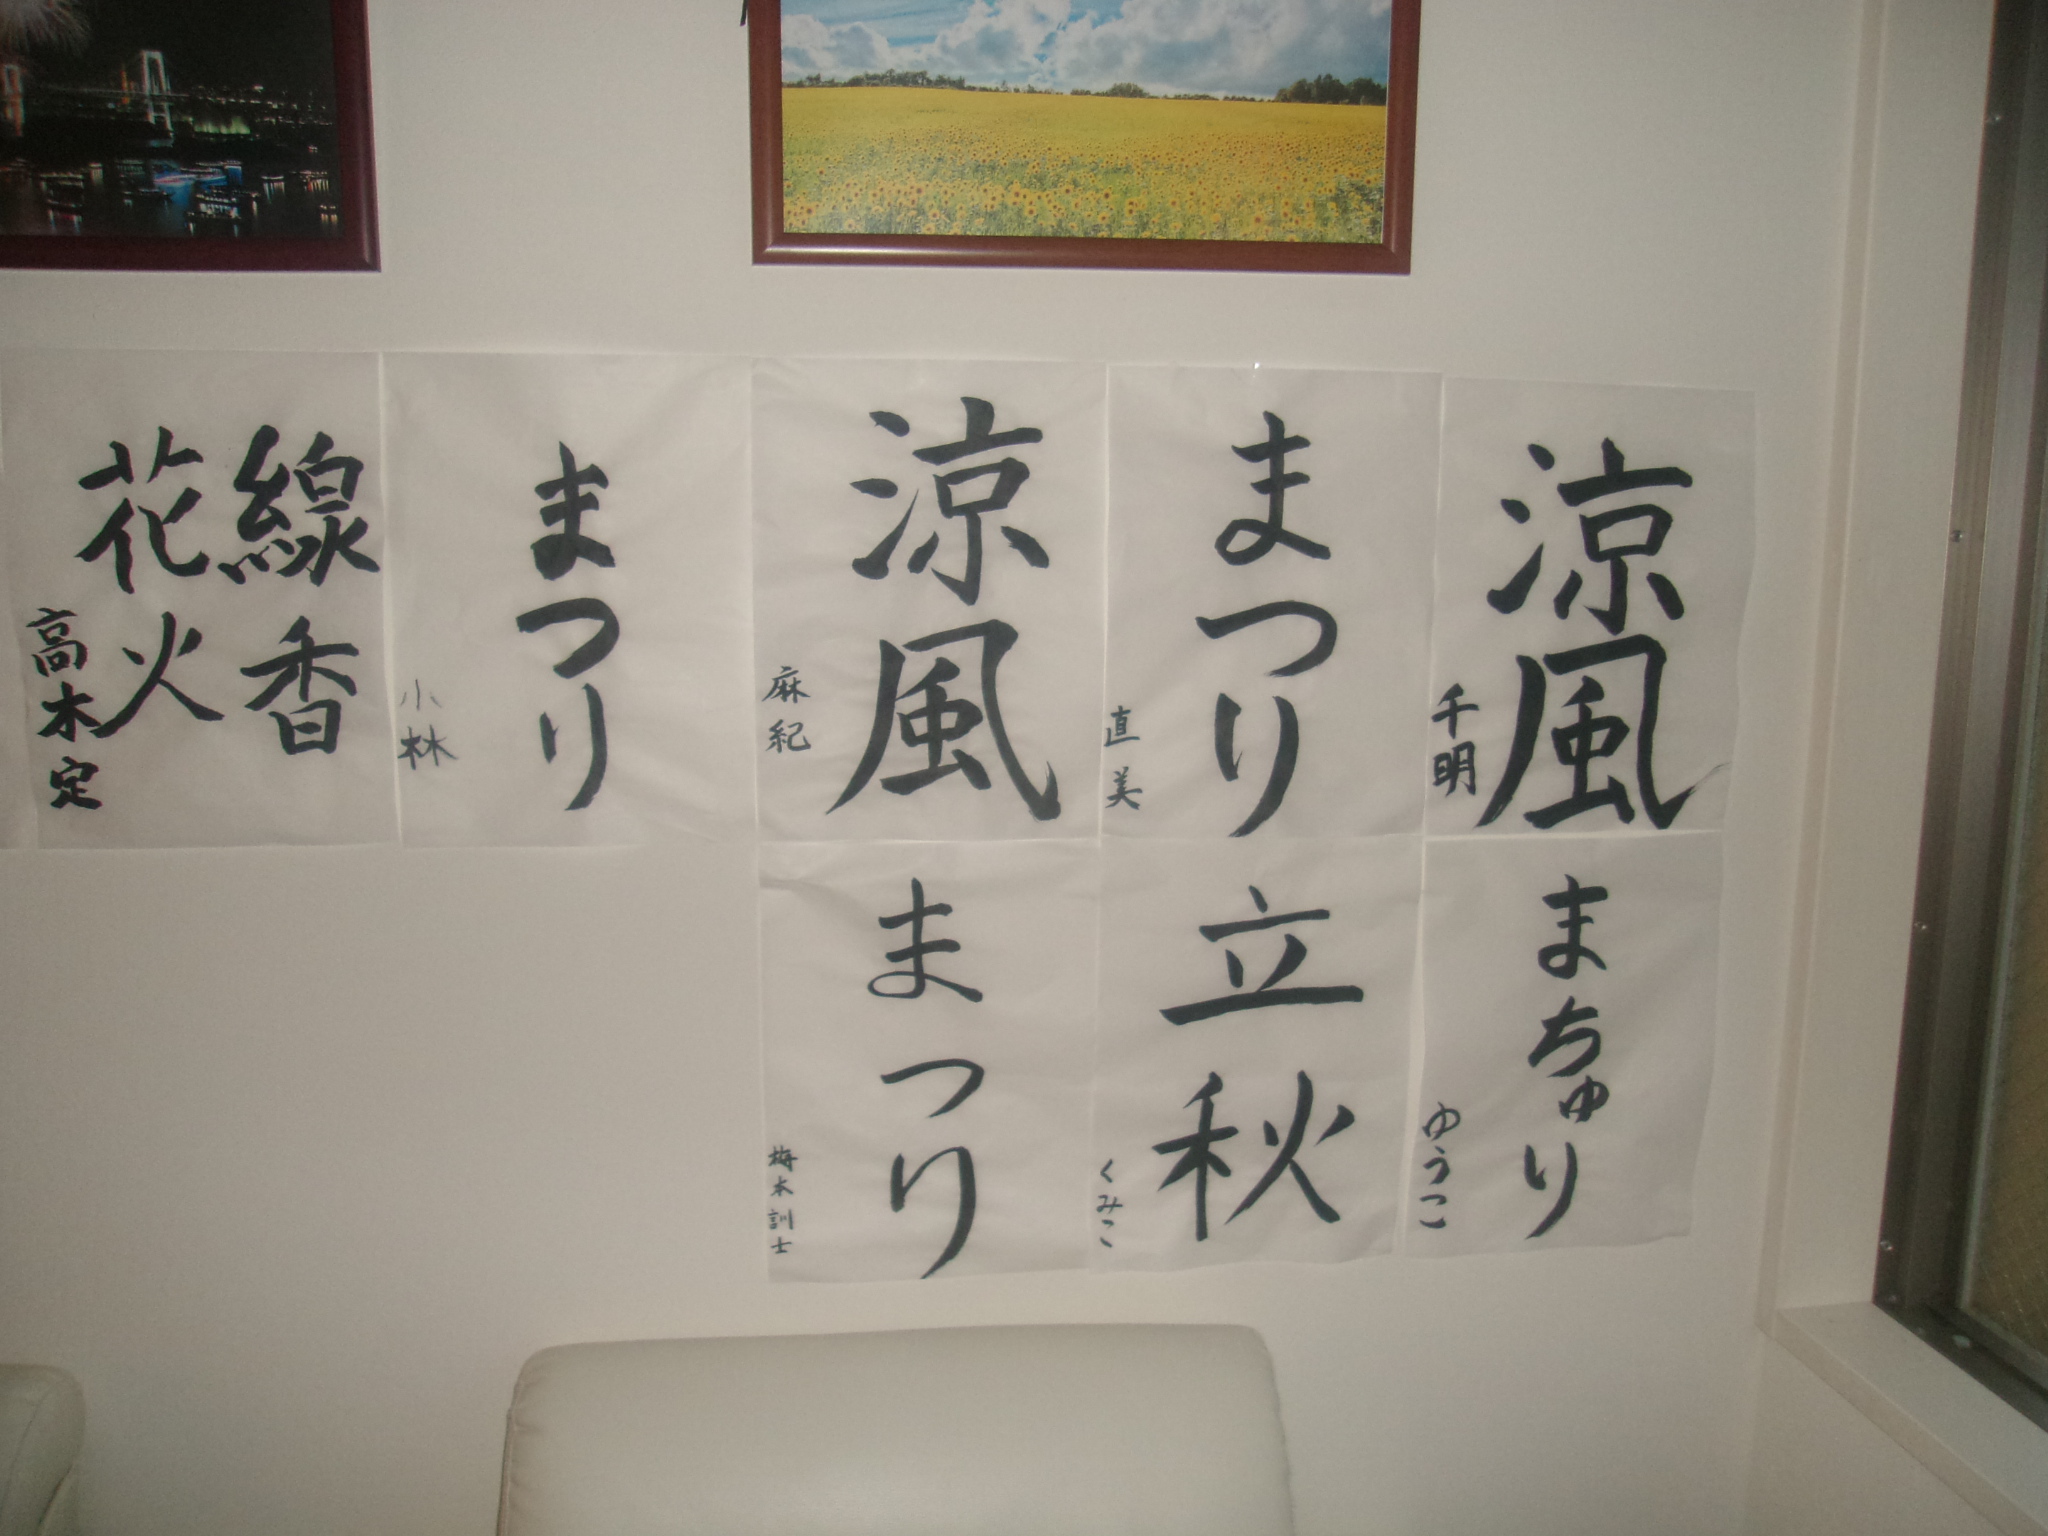 涼風
千明
まつり
直美
涼風
麻紀
まつり
小林
線香
花火
高木定
まちゅり
ゆうこ
立秋
くみこ
まつり
梅木訓士